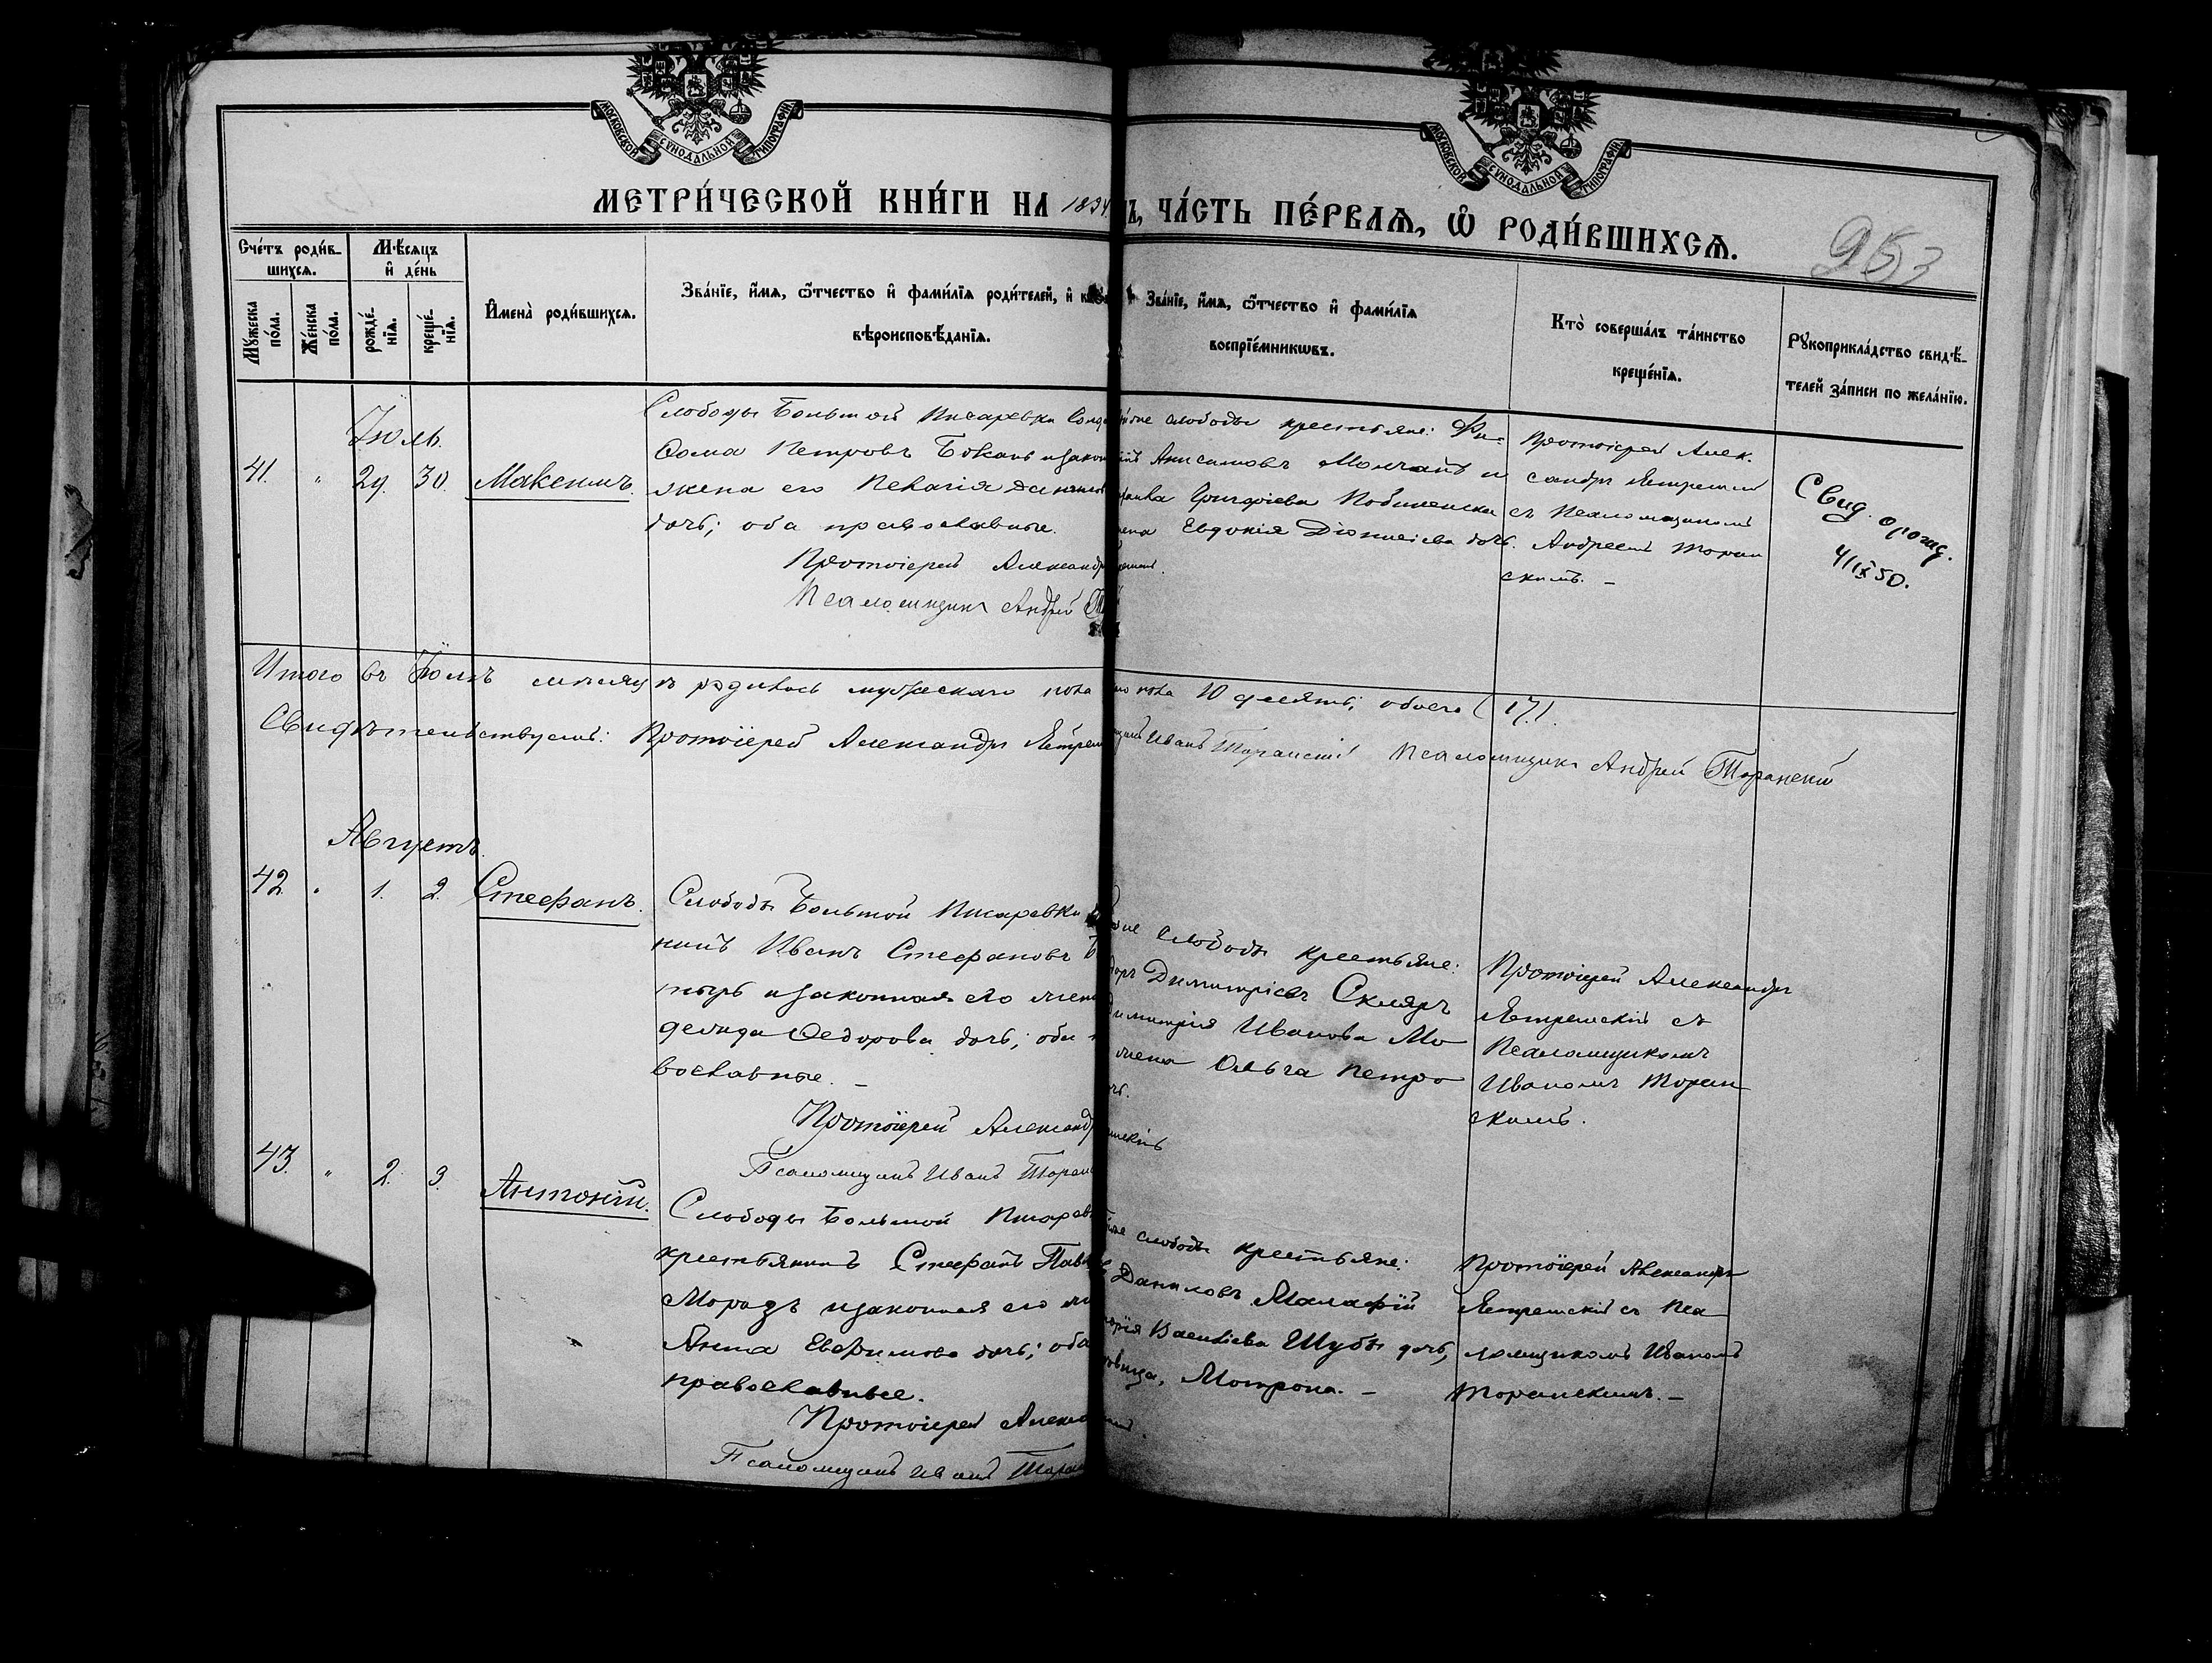 МОСКОВСКОЙ СѴНОДАЛЬНОЙ ТИПОГРАФІИ
МОСКОВСКОЙ СѴНОДАЛЬНОЙ ТИПОГРАФІИ
МЕТРИ́ЧЕСКОЙ КНИ́ГИ НА 1894
Ъ, ЧА́СТЬ ПЕ́РВАѦ, Ѡ҆ РОДИ́ВШИХСѦ.
953
Сче́тъ роди́в-
шихсѧ.
Мѣ́сѧцъ
и҆ де́нь
Мꙋ́жеска по́ла.
Же́нска по́ла.
рожде́-
нїѧ.
креще́-
нїѧ.
И҆мена̀ роди́вшихсѧ.
Зва́нїе, и҆́мѧ, ѻ҆́тчество и҆ фами́лїѧ роди́телей, и҆
вѣроисповѣ́данїѧ.
Зва́нїе, и҆́мѧ, ѻ҆́тчество и҆ фами́лїѧ
воспрїе́мникѡвъ.
Кто̀ соверша́лъ та́инство
креще́нїѧ.
Рꙋкоприкла́дство свидѣ́-
телей за́писи по жела́нїю.
Іюль.
41. " 29. 30. Максимъ.
Слободы Большой Писаревки
Ѳома Петровъ Бокань и законная
жена его Пелагія Данилова
дочь; оба православные.
Протоіерей Александръ
Псаломщикъ Андрей
слободы крестьяне:
Анисимовъ Молчанъ и
Григорьева
Евдокія Діонисіева дочь.
Протоіерей Алек-
сандръ Ястремскій
съ Псаломщикомъ
Андреемъ Торан
скимъ. –
Свид. о рожд.
4/IX 50.
Итого въ Іюлѣ мѣсяцѣ родилось мужескаго пола
пола 10 десять; обоего (17).
Свидѣтельствуемъ: Протоіерей Александръ Ястрем
Иванъ Торанскій Псаломщикъ Андрей Торанскій
Августъ.
42. " 1. 2. Стефанъ.
Слободы Большой Писаревки
нинъ Иванъ Стефановъ
тырь и законная его жена
Ѳедорова дочь; оба
вославные. –
Протоіерей Александръ
Псаломщикъ Иванъ Торан
слободы крестьяне:
Димитріевъ Скляръ
Димитрія Иванова Мо
жена Ольга Петро
Протоіерей Александръ
Ястремскій съ
Псаломщикомъ
Иваномъ Торан
скимъ.
43. " 2. 3. Антоній.
Слободы Большой Писарев
крестьянинъ Стефанъ Пав
Морозъ и законная его
Анна Евфимова дочь; оба
православные.
Протоіерей Алекса
Псаломщикъ Иванъ Торан
слободы крестьяне:
Даниловъ Малафій
Василіева Шубы дочь,
Мотрона. –
Протоіерей Александръ
Ястремскій съ Пса
ломщикомъ Иваномъ
Торанскимъ. –